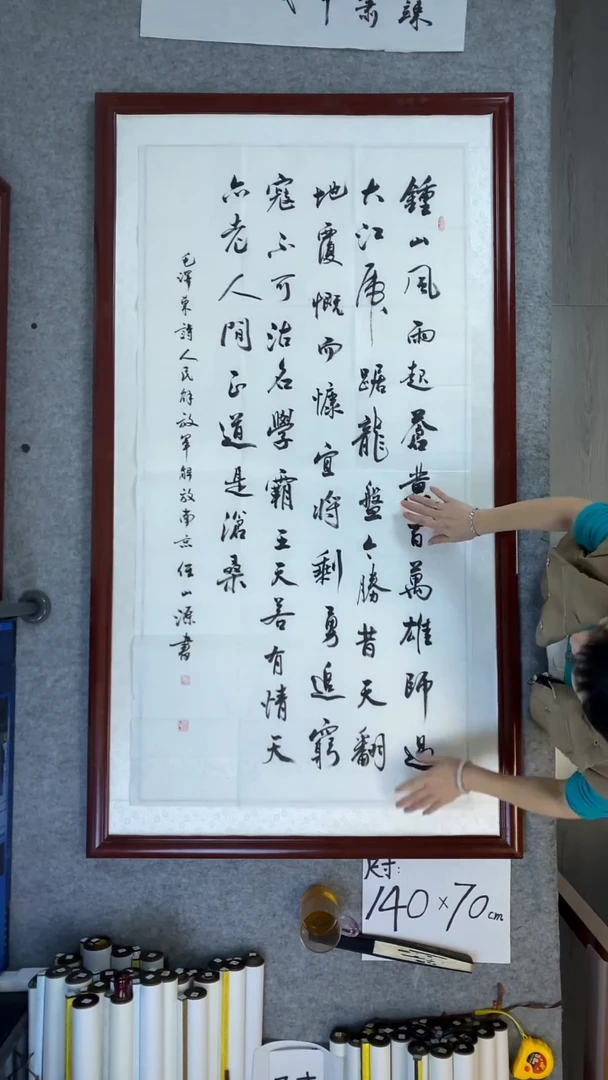 鍾山風雨起蒼黄百萬雄師過
大江虎踞龍盤今勝昔天翻
地覆慨而慷宜將剩勇追窮
寇不可沽名學霸王天若有情天
亦老人間正道是滄桑
毛澤東詩人民解放軍解放南京任山源書
尺寸:
140×70cm